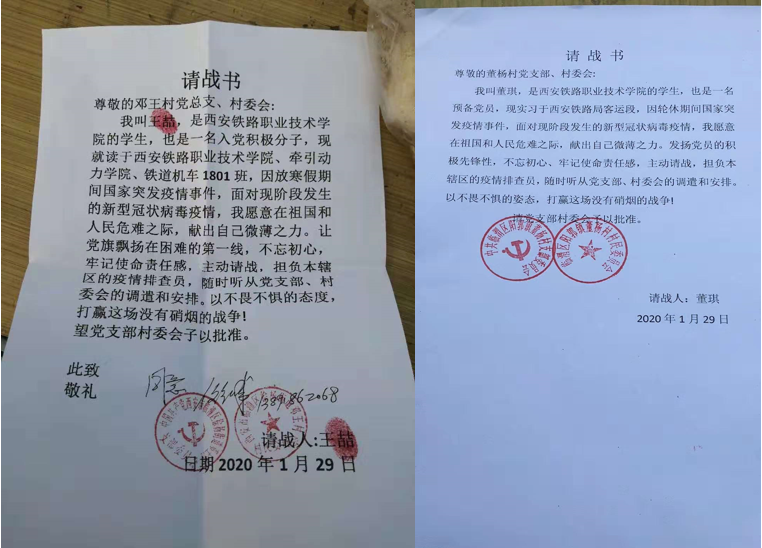 请战书
尊敬的邓王村党总支、村委会:
我叫王喆，是西安铁路职业技术学
院的学生，也是一名入党积极分子，现
就读于西安铁路职业技术学院、牵引动
力学院、铁道机车1801班，因放寒假期
间国家突发疫情事件，面对现阶段发生
的新型冠状病毒疫情，我愿意在祖国和
人民危难之际，献出自己微薄之力。让
党旗飘扬在困难的第一线，不忘初心，
牢记使命责任感，主动请战，担负本辖
区的疫情排查员，随时听从党支部、村
委会的调遣和安排。以不畏不惧的态度，
打赢这场没有硝烟的战争!
望党支部村委会予以批准。
此致
敬礼
同意
请战人:王喆
日期2020年1月29日
请战书
尊敬的董杨村党支部、村委会:
我叫董琪，是西安铁路职业技术学院的学生，也是一名
预备党员，现实习于西安铁路局客运段，因轮休期间国家突
发疫情事件，面对现阶段发生的新型冠状病毒疫情，我愿意
在祖国和人民危难之际，献出自己微薄之力。发扬党员的积
极先锋性，不忘初心、牢记使命责任感，主动请战，担负本
辖区的疫情排查员，随时听从党支部、村委会的调遣和安排。
以不畏不惧的姿态，打赢这场没有硝烟的战争!
请党支部村委会予以批准。
请战人：董琪
2020年1月29日